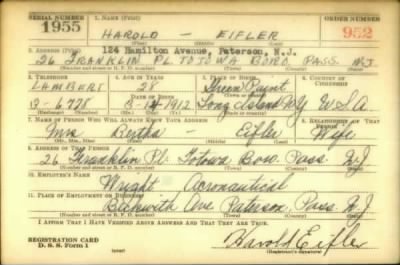 SERIAL NUMBER 1. NAME (Print) ORDER NUMBER
1955 HAROLD - EIFLER 952
(First) (Middle) (Last)
124 Hamilton Avenue, Paterson, N.J.
2. ADDRESS (Print)
26 FRANKLIN PL. TOTOWA BORO PASS. NJ
(Number and street or R. F. D. number) (Town) (County) (State)
3. TELEPHONE 4. AGE IN YEARS 5. PLACE OF BIRTH 6. COUNTRY OF CITIZENSHIP
LAMBERT 28 Green Point
DATE OF BIRTH
8-14-1912 Long Island NY U.S.A.
7. NAME OF PERSON WHO WILL ALWAYS KNOW YOUR ADDRESS 8. RELATIONSHIP OF THAT PERSON
Mrs Bertha - Eifler Wife
(Mr., Mrs., Miss) (First) (Middle) (Last)
9. ADDRESS OF THAT PERSON
26 Franklin Pl. Totowa Boro Pass NJ
(Number and street or R. F. D. number) (Town) (County) (State)
10. EMPLOYER'S NAME
Wright Aeronautical
11. PLACE OF EMPLOYMENT OR BUSINESS
Beckwith Ave Paterson, Pass. N.J.
(Number and street or R. F. D. number) (Town) (County) (State)
I AFFIRM THAT I HAVE VERIFIED ABOVE ANSWERS AND THAT THEY ARE TRUE.
REGISTRATION CARD
D. S. S. Form 1 (over) Harold Eifler
(Registrant's signature)